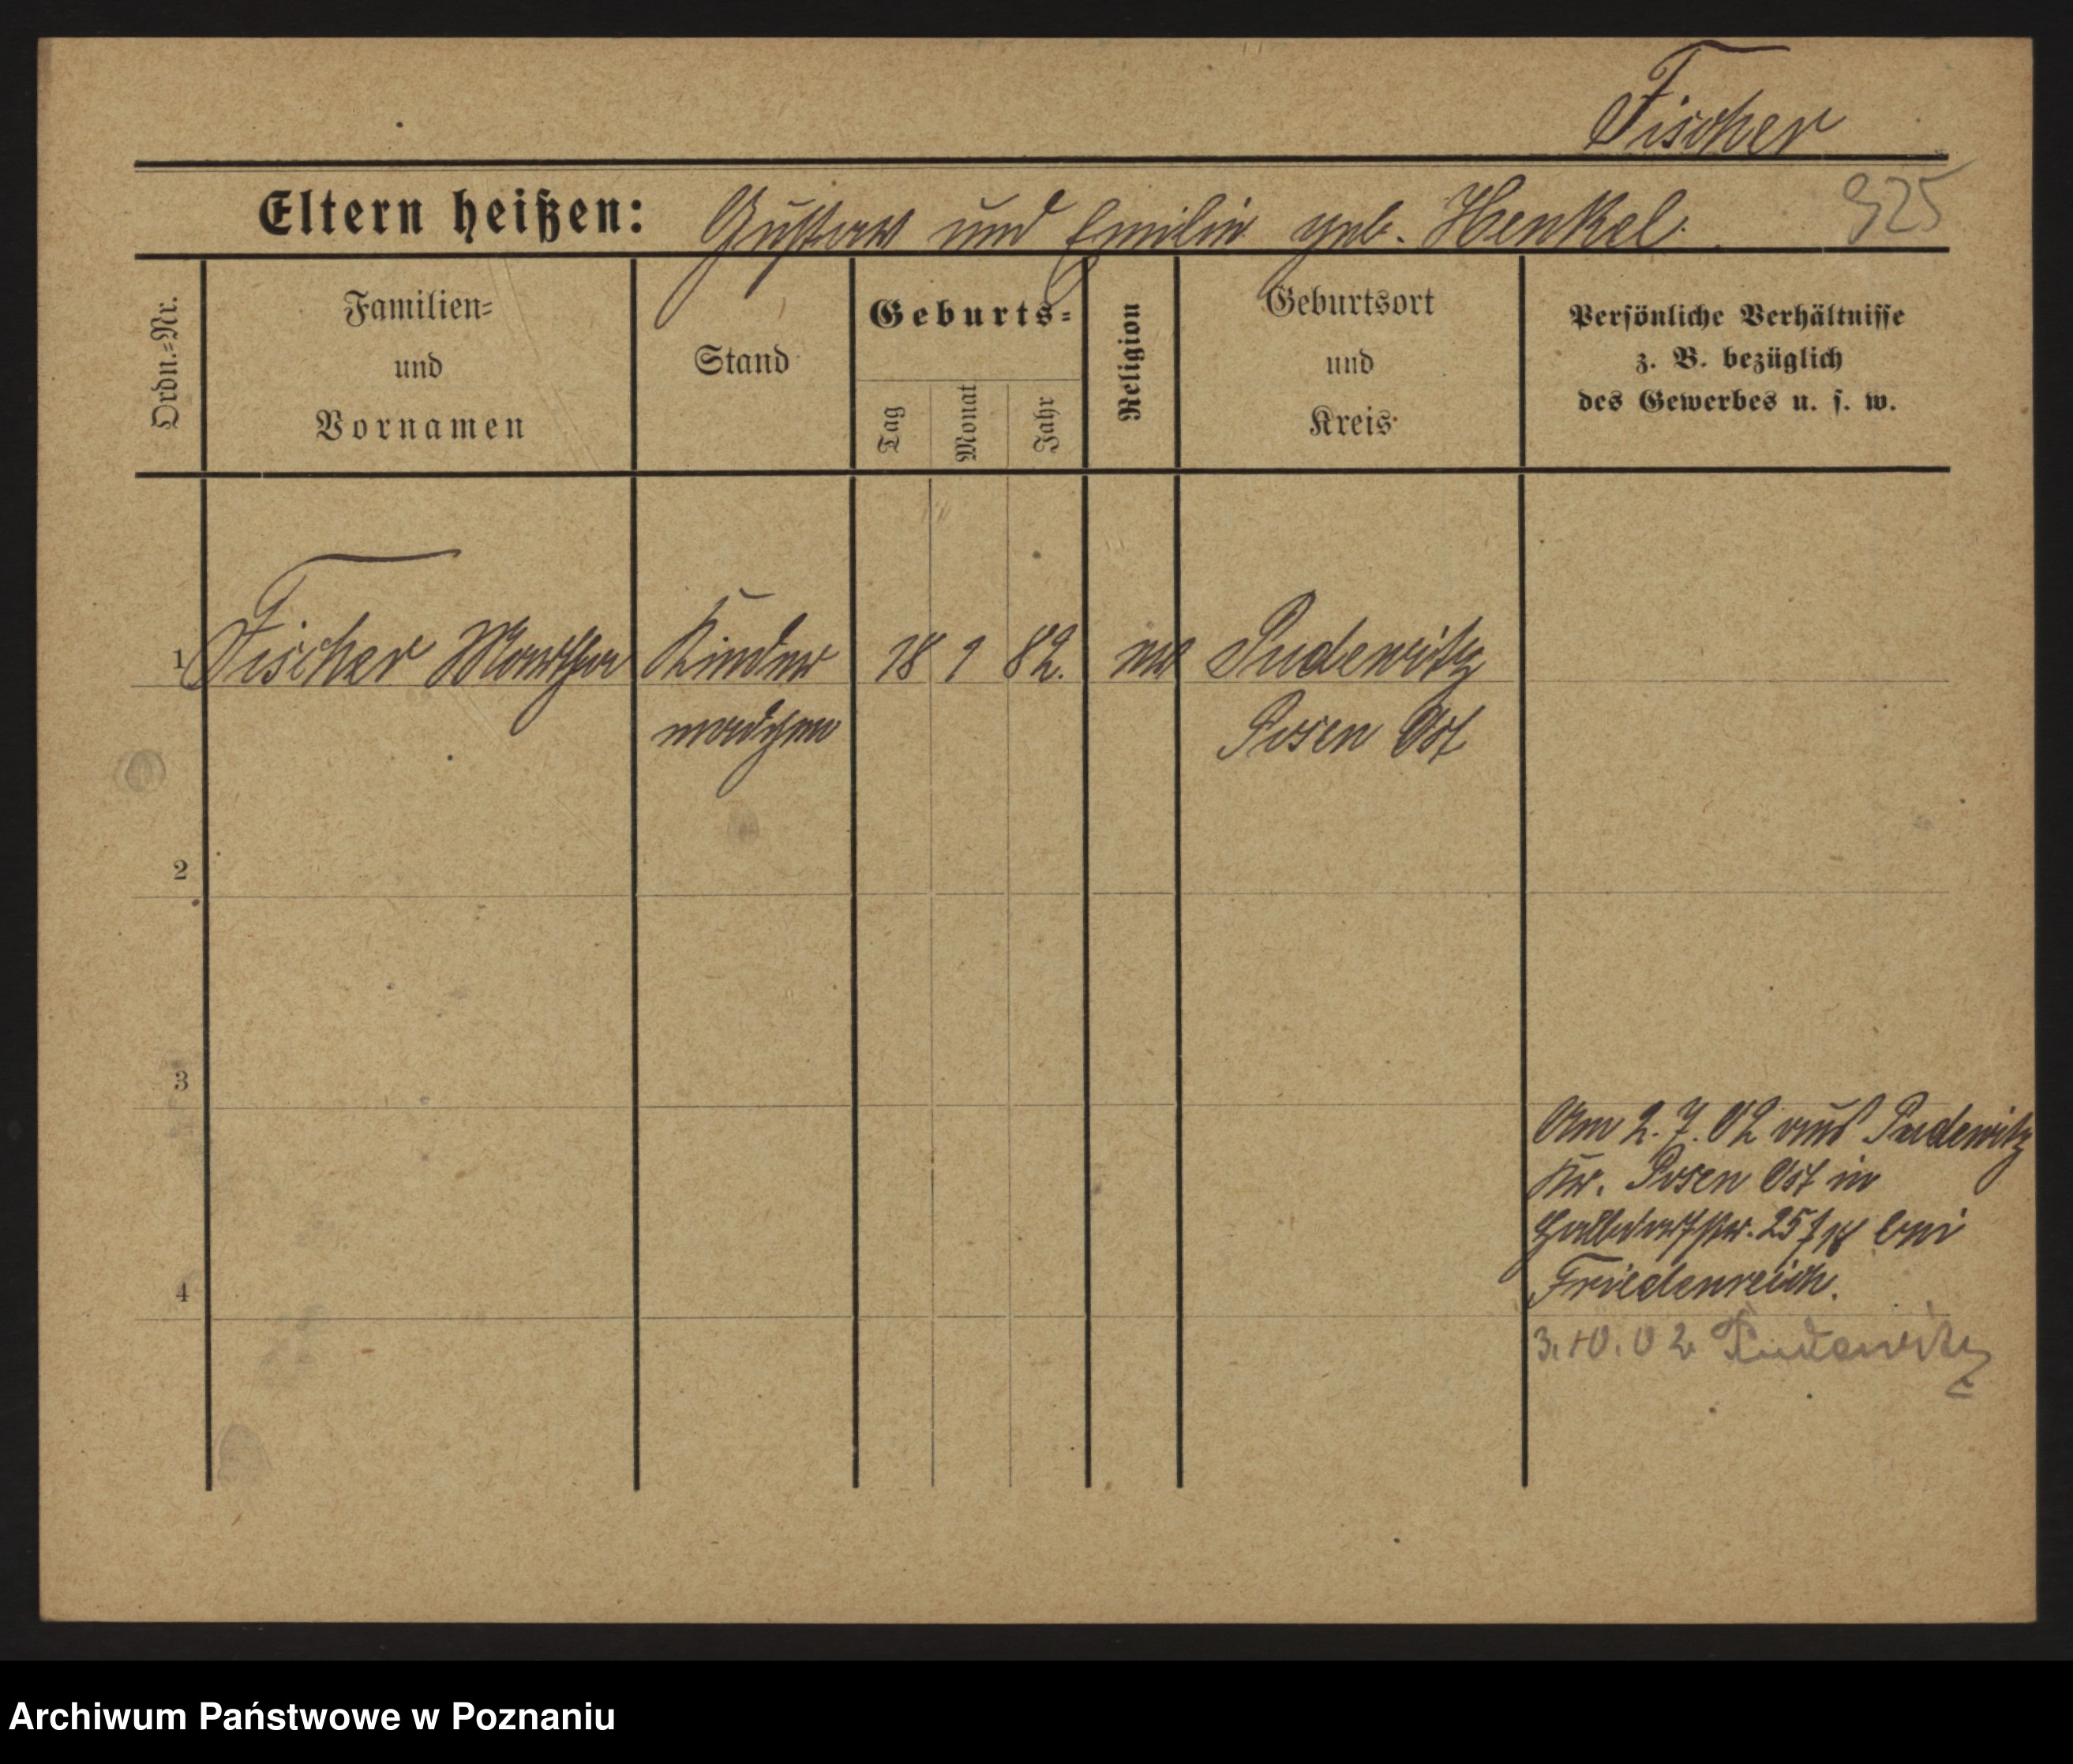 Fischer
925
Eltern heißen: Gustav und Emilie geb. Henkel.
Ordn.=Nr.
Familien=
und
Vornamen
Stand
Geburts=
Tag
Monat
Jahr
Religion
Geburtsort
und
Kreis
Persönliche Verhältnisse
z. B. bezüglich
des Gewerbes u. s. w.
1 Fischer Martha Kinder 18 1 82. ev Pudewitz
mädchen Posen Ost
2
3
Am 2.7.02 aus Pudewitz
Kr. Posen Ost in
Halbdorfstr. 25 bei
4
Friedenreich.
3.10.02 Pudewitz
Archiwum Państwowe w Poznaniu